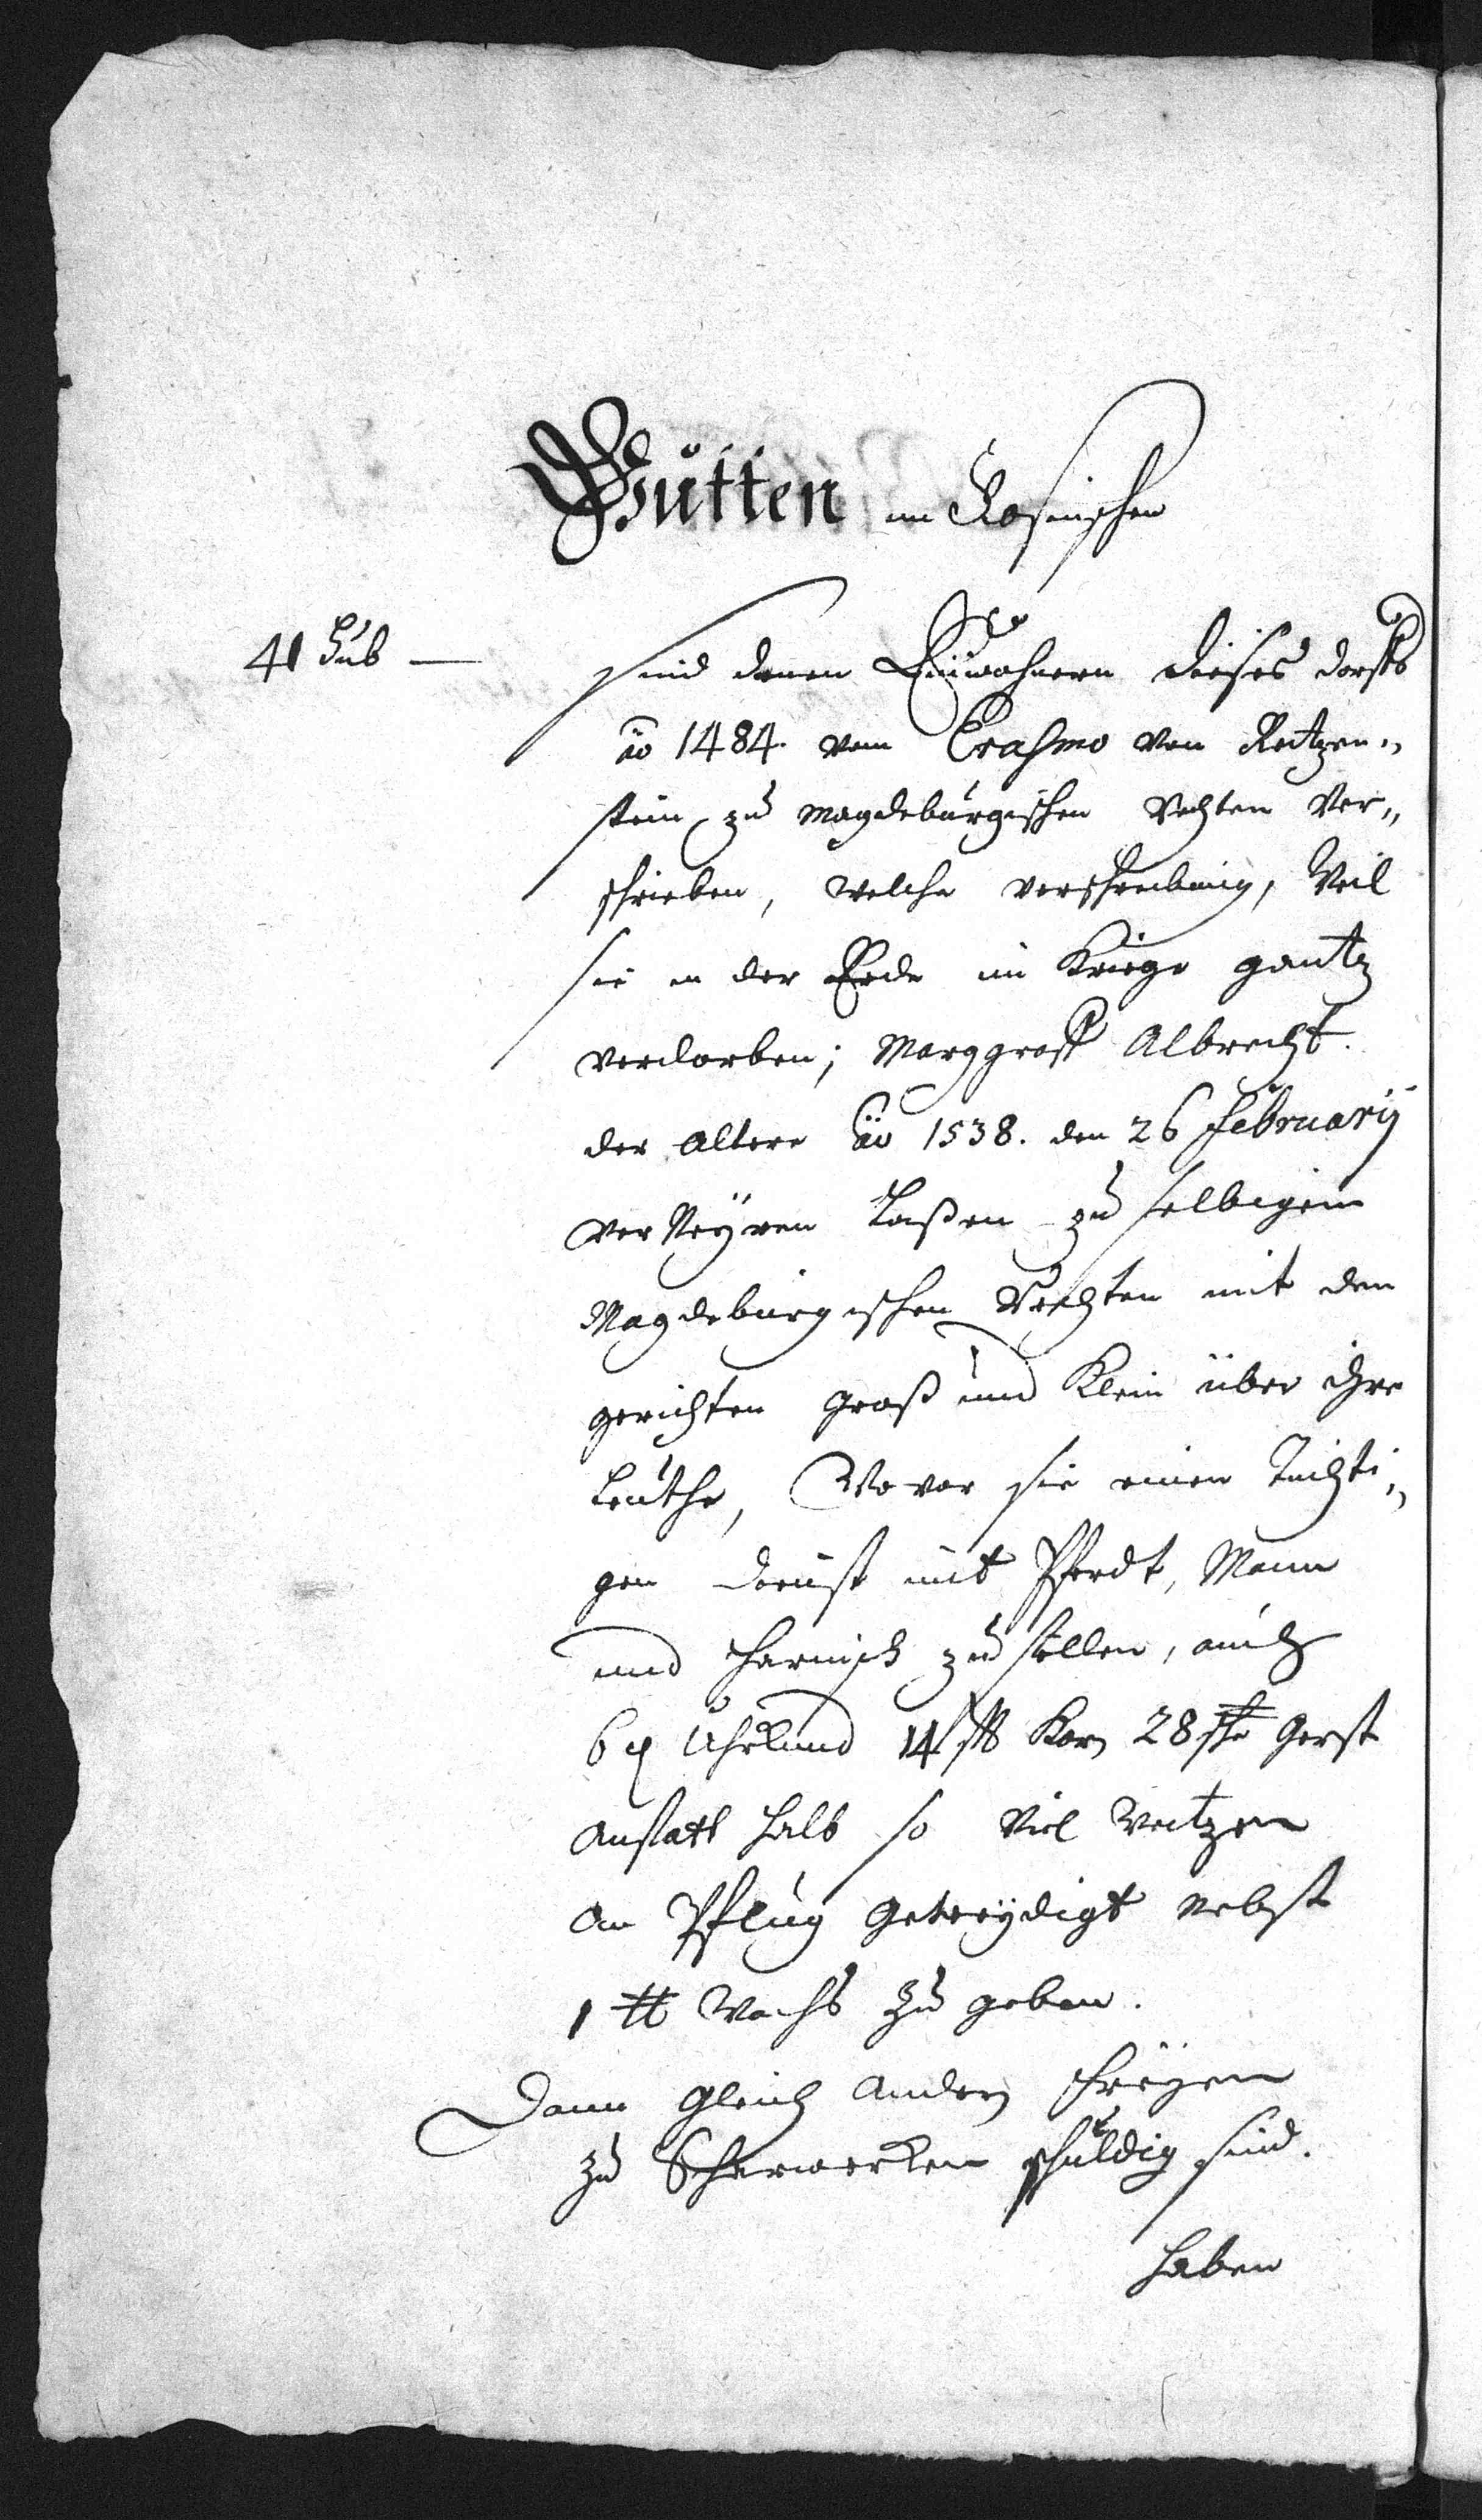 Gutten im Rosinschen
41 Hub — sind denen Einwohnern dieses dorffs
ao 1484. vom Erasmo von Reitzen„
stein zu Magdeburgischen Rechten Ver„
schrieben, welche verschreibung, Weil
sie in der Erde im Kriege gantz
verdorben; Marggraff Albrecht.
der Altere ao 1538. den 26 Februarij
verNeyren Laßen zu selbigem
Magdeburgischen Rechten mit den
gerichten groß und Klein über ihre
Leuthe, Wovor sie einen Tüchti„
gen dienst mit Pferdt, Mann
und Harnisch zu stellen, auch
14 ß Korn 28 Gerst
anstatt halb so Viel Weitzen
an Pflug Getreydigt nebst
1 ℔ Wachs zu geben.
Dann gleich andern Freyen
zu Scharwerken schuldig sind.
haben